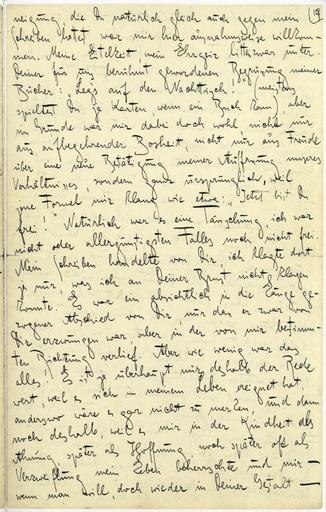 19
neigung, die Du natürlich gleich auch gegen mein
Schreiben hattest, war mir hier ausnahmsweise willkom-
men. Meine Eitelkeit, mein Ehrgeiz litten zwar unter
Deiner für uns berühmt gewordenen Begrüssung meiner
Bücher: "Legs auf den Nachttisch!" (meistens
spieltest Du ja Karten wenn ein Buch kam) aber
im Grunde war mir dabei doch wohl, nicht nur
aus aufbegehrender Bosheit, nicht nur aus Freude
über eine neue Bestätigung meiner Auffassung unseres
Verhältnisses, sondern ganz ursprünglich, weil
jene Formel mir klang wie etwa: "Jetzt bist Du
frei!" Natürlich war es eine Täuschung ich war
nicht oder allergünstigsten Falles noch nicht frei.
Mein Schreiben handelte von Dir, ich klagte dort
ja nur, was ich an Deiner Brust nicht klagen
konnte. Es war ein absichtlich in die Länge ge-
zogener Abschied von Dir nur dass er zwar von
Dir erzwungen war, aber in der von mir bestimm-
ten Richtung verlief. Aber wie wenig war das
alles! Es ist ja überhaupt nur deshalb der Rede
wert weil es sich in meinem Leben ereignet hat,
anderswo wäre es gar nicht zu merken, und dann
noch deshalb, weil es mir in der Kindheit als
Ahnung, später als Hoffnung, noch später oft als
Verzweiflung mein Leben beherrschte und mir –
wenn man will, doch wieder in Deiner Gestalt –